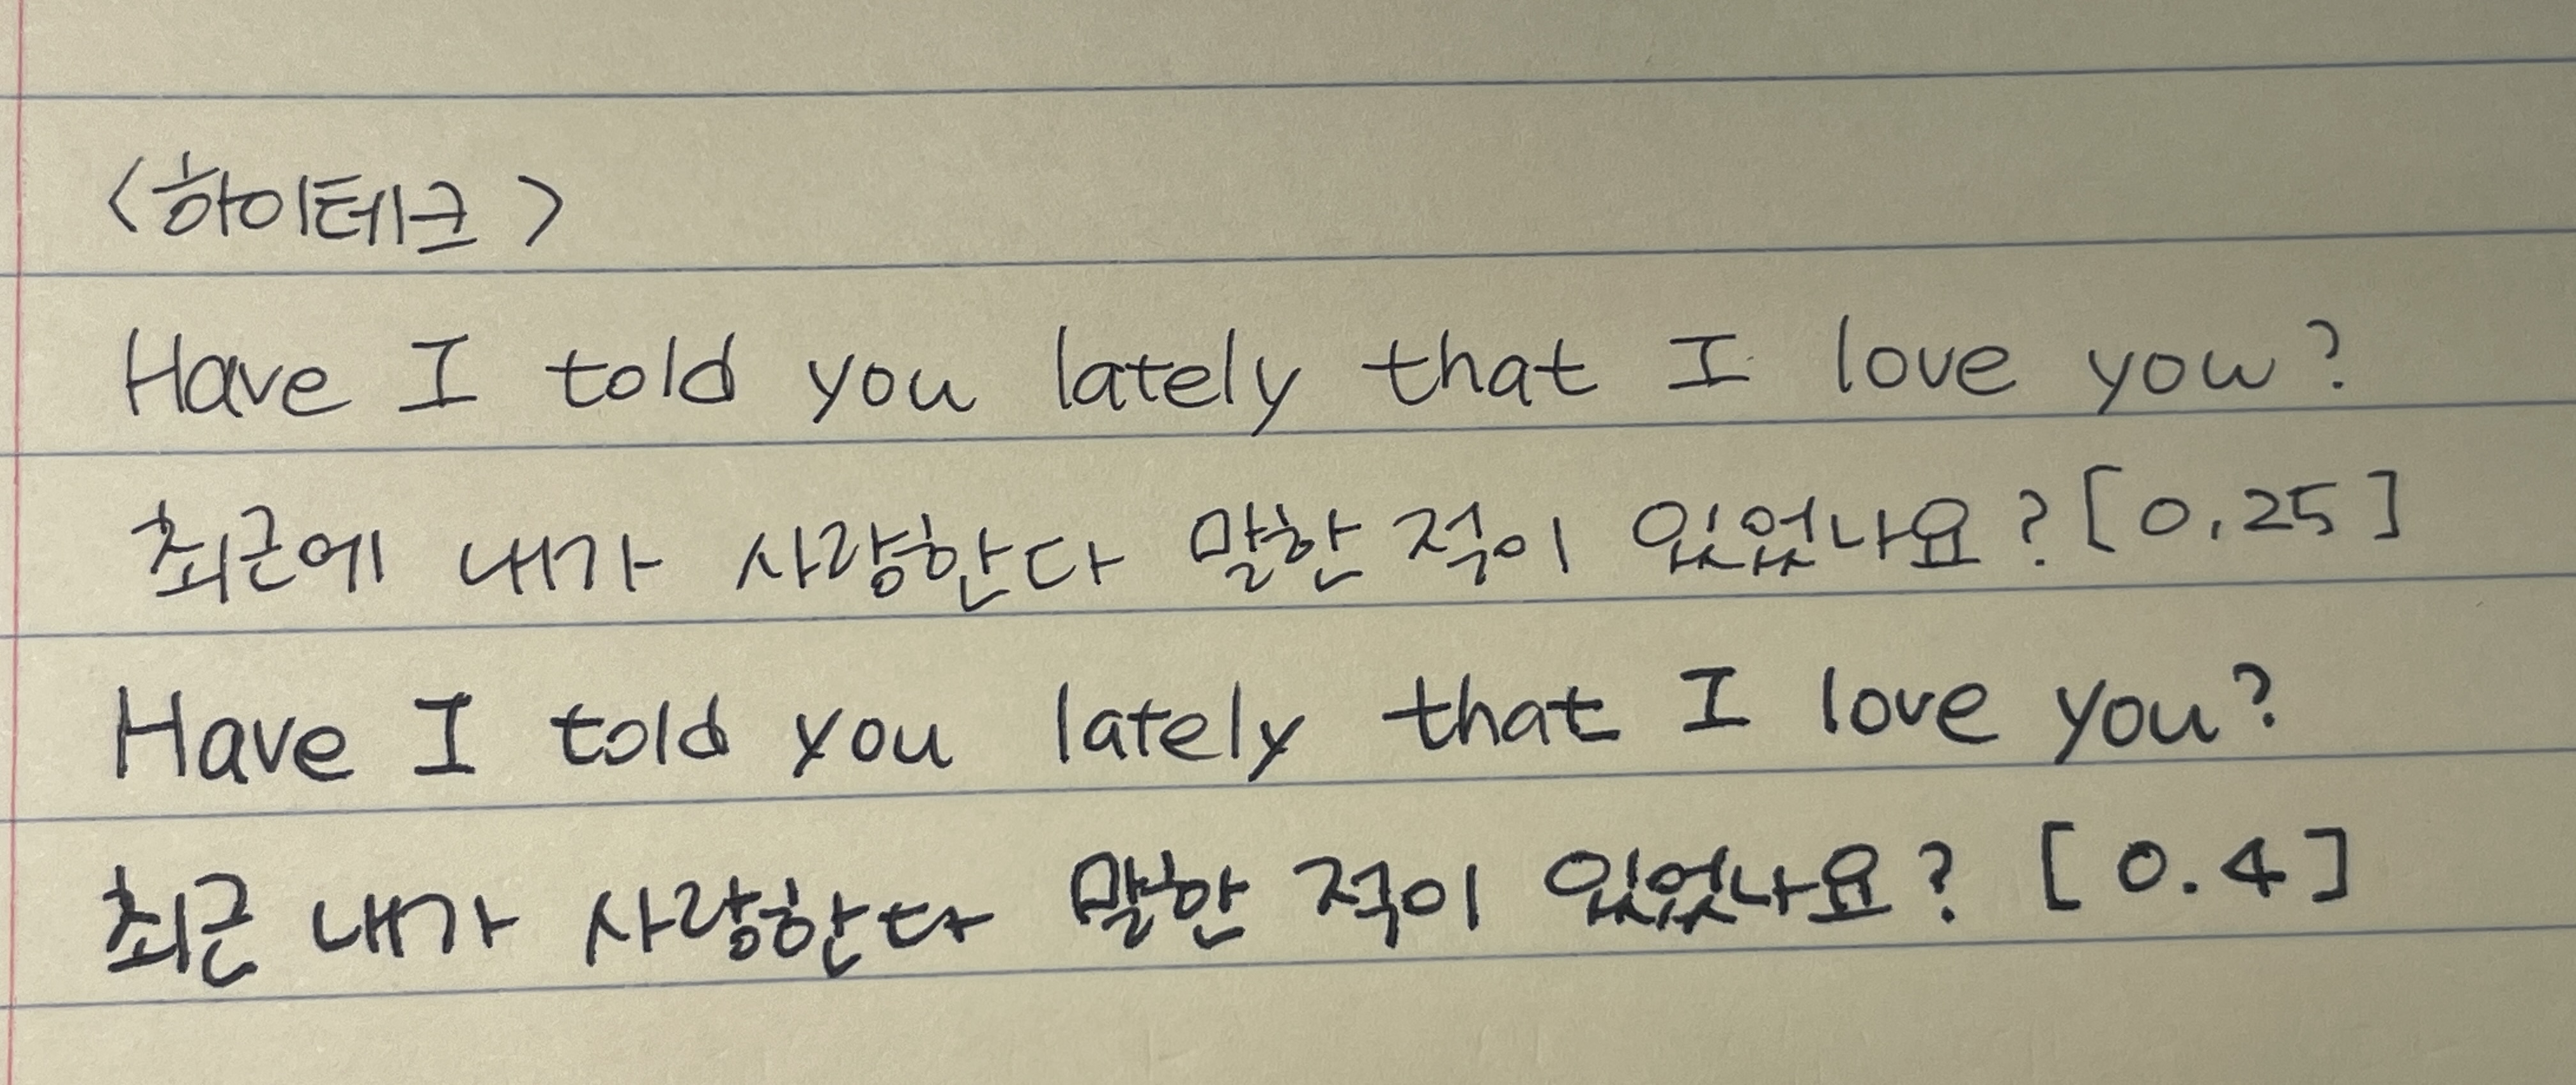 <하이테크>
Have I told you lately that I love you?
최근에 내가 사랑한다 말한 적이 있었나요? [0.25]
Have I told you lately that I love you?
최근 내가 사랑한다 말한 적이 있었나요? [0.4]